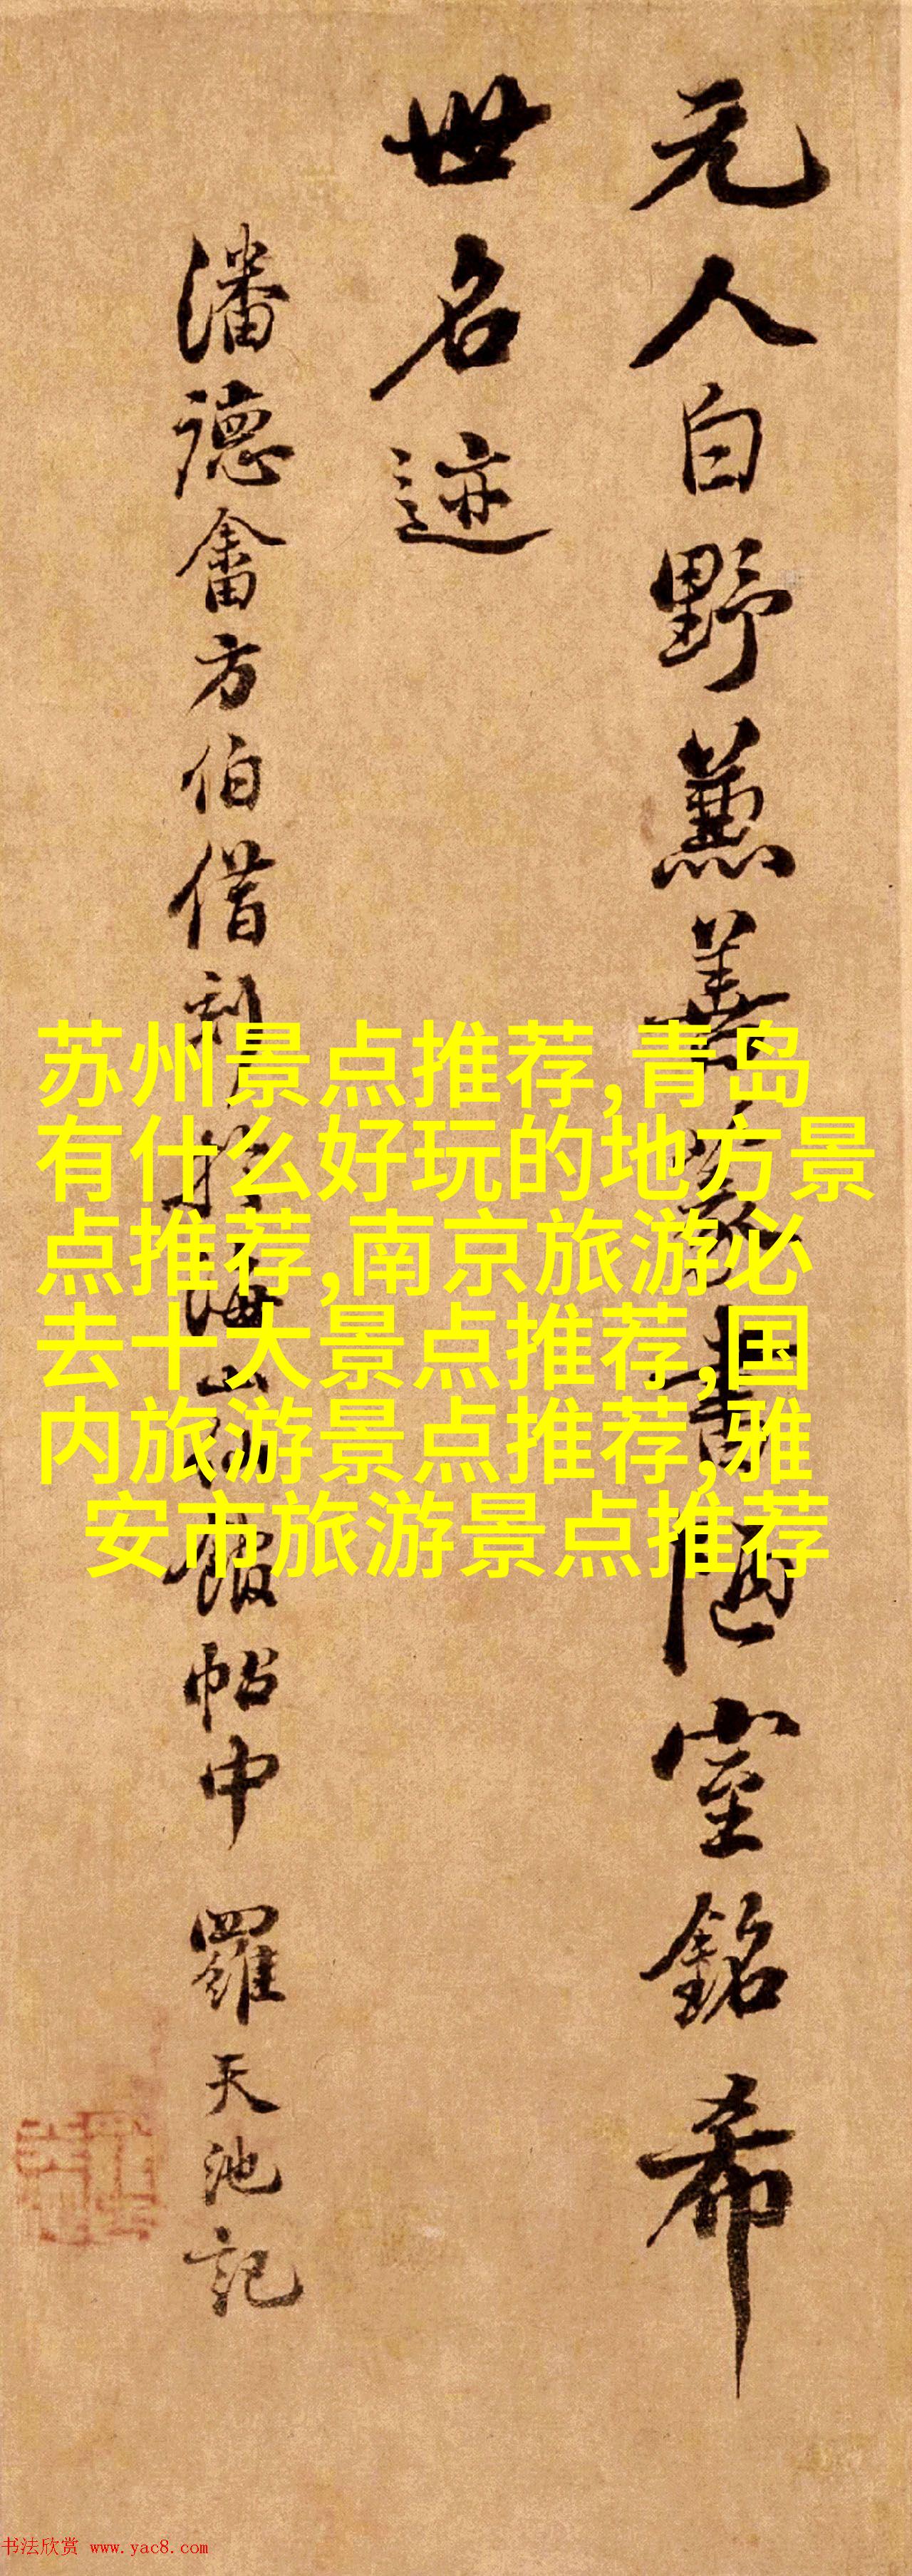 元人白野兼善篆書陋室銘希
世名迹
潘德畬方伯借刻於海山仙館帖中 羅天池記
苏州景点推荐,青岛
有什么好玩的地方景
点推荐,南京旅游必
去十大景点推荐,国
内旅游景点推荐,雅
安市旅游景点推荐
书法欣赏 www.yac8.com